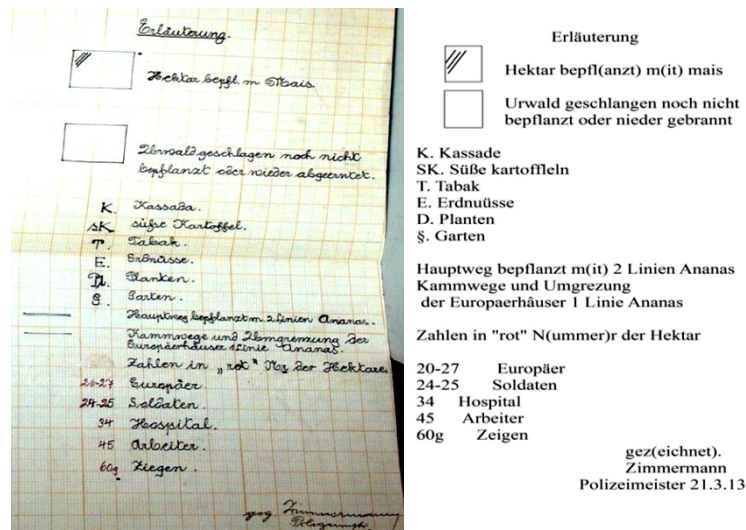 Erläuterung.
Hektar bepfl. m. Mais.
Urwald geschlagen noch nicht
bepflanzt oder wieder abgeerntet.
K. Kassada.
sK. süße Kartoffel.
T. Tabak.
E. Erdnüsse.
Pl. Planken.
G. Garten.
Hauptweg bepflanzt m. 2 Linien Ananas.
Kammwege und Umgrenzung der
Europäerhäuser 1 Linie Ananas.
Zahlen in „rot" Nr der Hektare
20-27 Europäer.
24-25 Soldaten.
34 Hospital.
45 Arbeiter.
60g Ziegen.
gez Zimmermann
Erläuterung
Hektar bepfl(anzt) m(it) mais
Urwald geschlangen noch nicht
bepflanzt oder nieder gebrannt
K. Kassade
SK. Süße kartoffleln
T. Tabak
E. Erdnuüsse
D. Planten
§. Garten
Hauptweg bepflanzt m(it) 2 Linien Ananas
Kammwege und Umgrezung
der Europaerhâuser 1 Linie Ananas
Zahlen in "rot" N(ummer)r der Hektar
20-27 Europäer
24-25 Soldaten
34 Hospital
45 Arbeiter
60g Zeigen
gez(eichnet).
Zimmermann
Polizeimeister 21.3.13